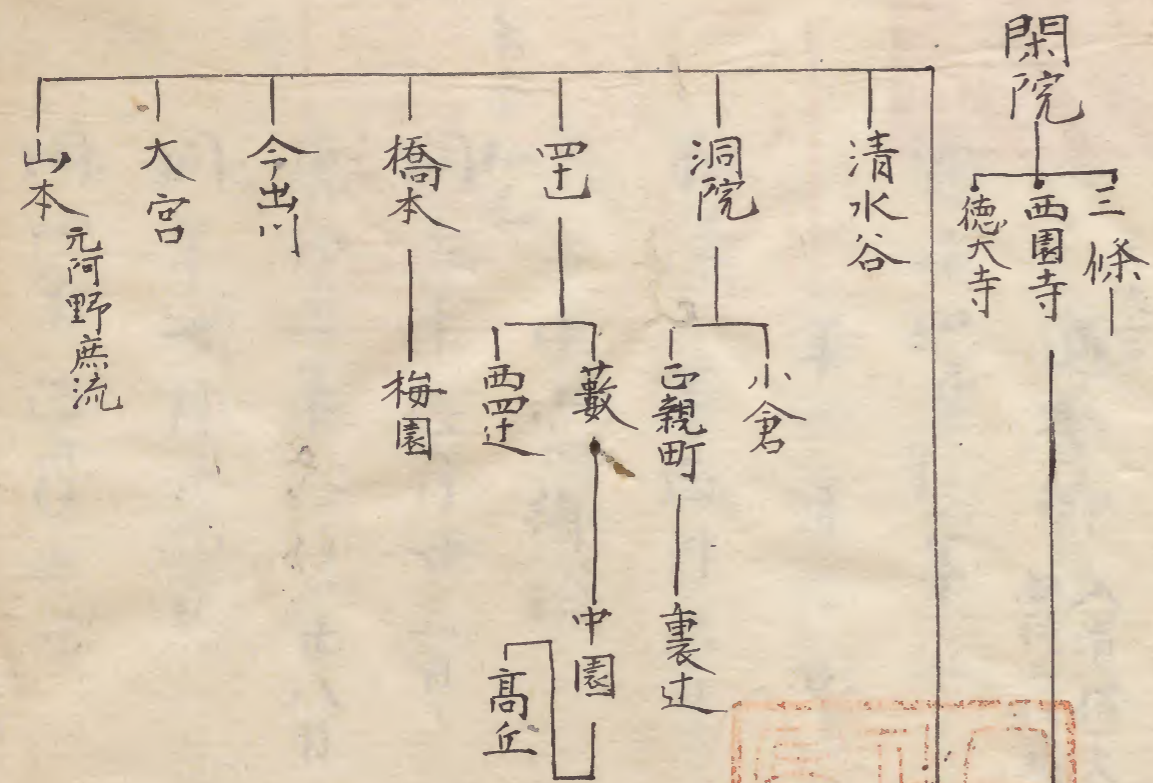 閑院
三條
西園寺
徳大寺
清水谷
洞院
小倉
正親町
裏辻
四辻
藪
中園
高丘
西四辻
橋本
梅園
今出川
大宮
山本
元阿野庶流